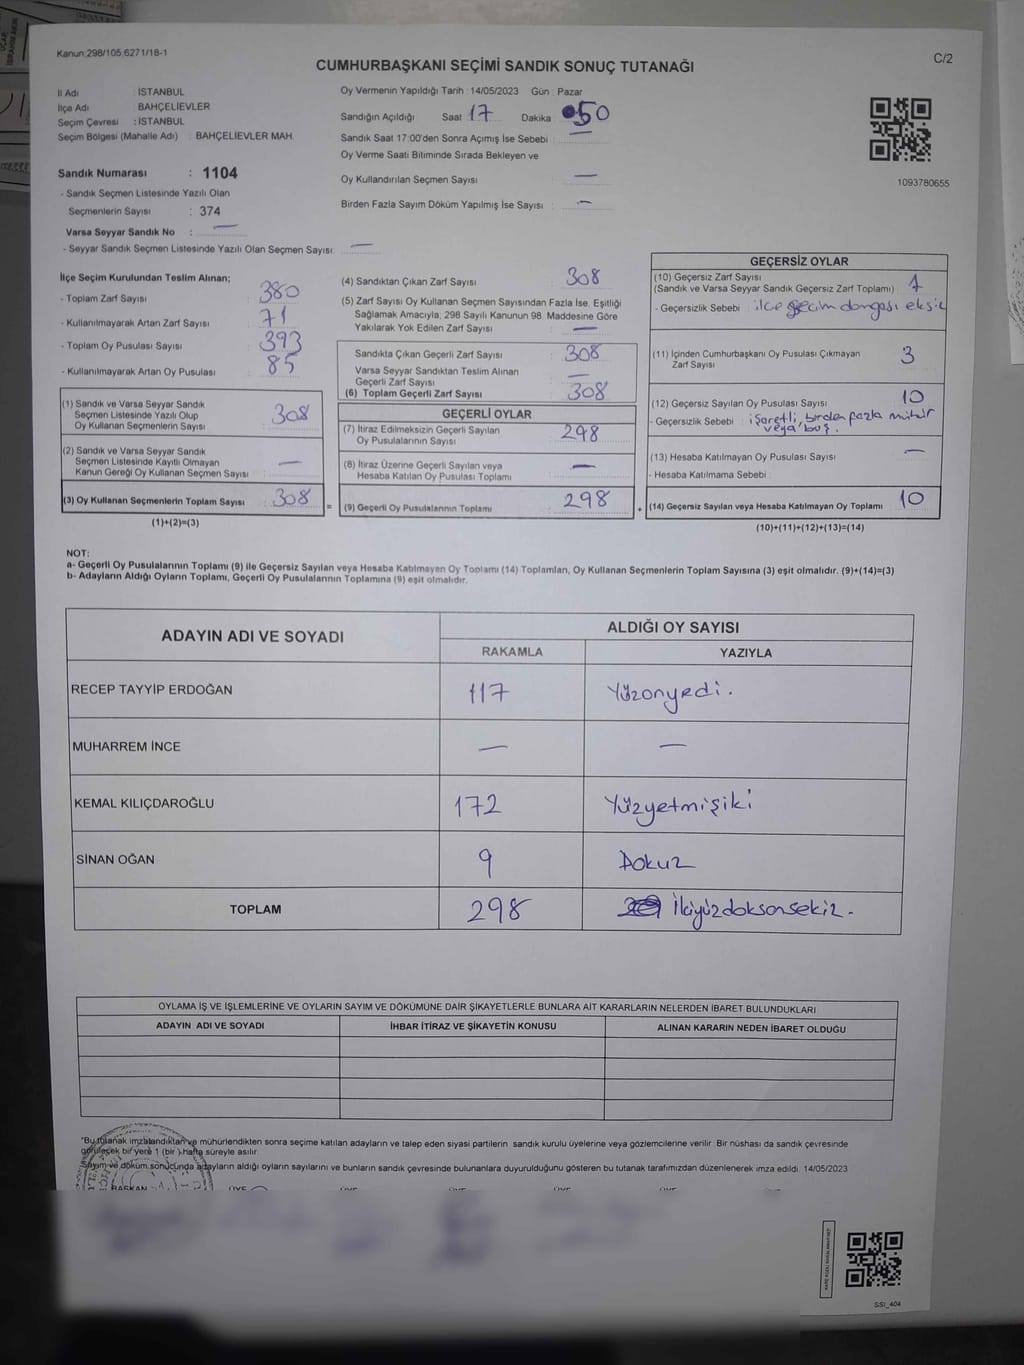 Kanun:298/105;6271/18-1
C/2
CUMHURBAŞKANI SEÇİMİ SANDIK SONUÇ TUTANAĞI
İl Adı : İSTANBUL
İlçe Adı : BAHÇELİEVLER
Seçim Çevresi : İSTANBUL
Seçim Bölgesi (Mahalle Adı) : BAHÇELİEVLER MAH.
Sandık Numarası : 1104
- Sandık Seçmen Listesinde Yazılı Olan
Seçmenlerin Sayısı : 374
Varsa Seyyar Sandık No : —
- Seyyar Sandık Seçmen Listesinde Yazılı Olan Seçmen Sayısı: —
Oy Vermenin Yapıldığı Tarih : 14/05/2023 Gün : Pazar
Sandığın Açıldığı Saat 17 Dakika 50
Sandık Saat 17:00'den Sonra Açımış İse Sebebi : —
Oy Verme Saati Bitiminde Sırada Bekleyen ve
Oy Kullandırılan Seçmen Sayısı : —
Birden Fazla Sayım Döküm Yapılmış İse Sayısı : —
1093780655
İlçe Seçim Kurulundan Teslim Alınan;
- Toplam Zarf Sayısı : 380
- Kullanılmayarak Artan Zarf Sayısı : 71
- Toplam Oy Pusulası Sayısı : 393
- Kullanılmayarak Artan Oy Pusulası : 85
(1) Sandık ve Varsa Seyyar Sandık
Seçmen Listesinde Yazılı Olup
Oy Kullanan Seçmenlerin Sayısı : 308
(2) Sandık ve Varsa Seyyar Sandık
Seçmen Listesinde Kayıtlı Olmayan
Kanun Gereği Oy Kullanan Seçmen Sayısı : —
(3) Oy Kullanan Seçmenlerin Toplam Sayısı : 308
(1)+(2)=(3)
(4) Sandıktan Çıkan Zarf Sayısı : 308
(5) Zarf Sayısı Oy Kullanan Seçmen Sayısından Fazla İse, Eşitliği
Sağlamak Amacıyla; 298 Sayılı Kanunun 98. Maddesine Göre
Yakılarak Yok Edilen Zarf Sayısı : —
Sandıkta Çıkan Geçerli Zarf Sayısı : 308
Varsa Seyyar Sandıktan Teslim Alınan
Geçerli Zarf Sayısı : —
(6) Toplam Geçerli Zarf Sayısı : 308
GEÇERLİ OYLAR
(7) İtiraz Edilmeksizin Geçerli Sayılan
Oy Pusulalarının Sayısı : 298
(8) İtiraz Üzerine Geçerli Sayılan veya
Hesaba Katılan Oy Pusulası Toplamı : —
= (9) Geçerli Oy Pusulalarının Toplamı : 298 +
GEÇERSİZ OYLAR
(10) Geçersiz Zarf Sayısı
(Sandık ve Varsa Seyyar Sandık Geçersiz Zarf Toplamı) : 1
- Geçersizlik Sebebi : ilçe seçim damgası eksik
(11) İçinden Cumhurbaşkanı Oy Pusulası Çıkmayan
Zarf Sayısı : 3
(12) Geçersiz Sayılan Oy Pusulası Sayısı : 10
- Geçersizlik Sebebi : işaretli, birden fazla mühür
veya boş.
(13) Hesaba Katılmayan Oy Pusulası Sayısı : —
- Hesaba Katılmama Sebebi :
(14) Geçersiz Sayılan veya Hesaba Katılmayan Oy Toplamı : 10
(10)+(11)+(12)+(13)=(14)
NOT:
a- Geçerli Oy Pusulalarının Toplamı (9) ile Geçersiz Sayılan veya Hesaba Katılmayan Oy Toplamı (14) Toplamları, Oy Kullanan Seçmenlerin Toplam Sayısına (3) eşit olmalıdır. (9)+(14)=(3)
b- Adayların Aldığı Oyların Toplamı, Geçerli Oy Pusulalarının Toplamına (9) eşit olmalıdır.
ADAYIN ADI VE SOYADI
ALDIĞI OY SAYISI
RAKAMLA YAZIYLA
RECEP TAYYİP ERDOĞAN 117 Yüzonyedi.
MUHARREM İNCE — —
KEMAL KILIÇDAROĞLU 172 Yüzyetmişiki
SİNAN OĞAN 9 Dokuz
TOPLAM 298 İkiyüzdoksansekiz.
OYLAMA İŞ VE İŞLEMLERİNE VE OYLARIN SAYIM VE DÖKÜMÜNE DAİR ŞİKAYETLERLE BUNLARA AİT KARARLARIN NELERDEN İBARET BULUNDUKLARI
ADAYIN ADI VE SOYADI İHBAR İTİRAZ VE ŞİKAYETİN KONUSU ALINAN KARARIN NEDEN İBARET OLDUĞU
*Bu tutanak imzalandıktan ve mühürlendikten sonra seçime katılan adayların ve talep eden siyasi partilerin sandık kurulu üyelerine veya gözlemcilerine verilir. Bir nüshası da sandık çevresinde
görülecek bir yere 1 (bir) Hafta süreyle asılır.
Sayım ve döküm sonucunda adayların aldığı oyların sayılarını ve bunların sandık çevresinde bulunanlara duyurulduğunu gösteren bu tutanak tarafımızdan düzenlenerek imza edildi. 14/05/2023
BAŞKAN ÜYE ÜYE ÜYE ÜYE ÜYE
SSI_404